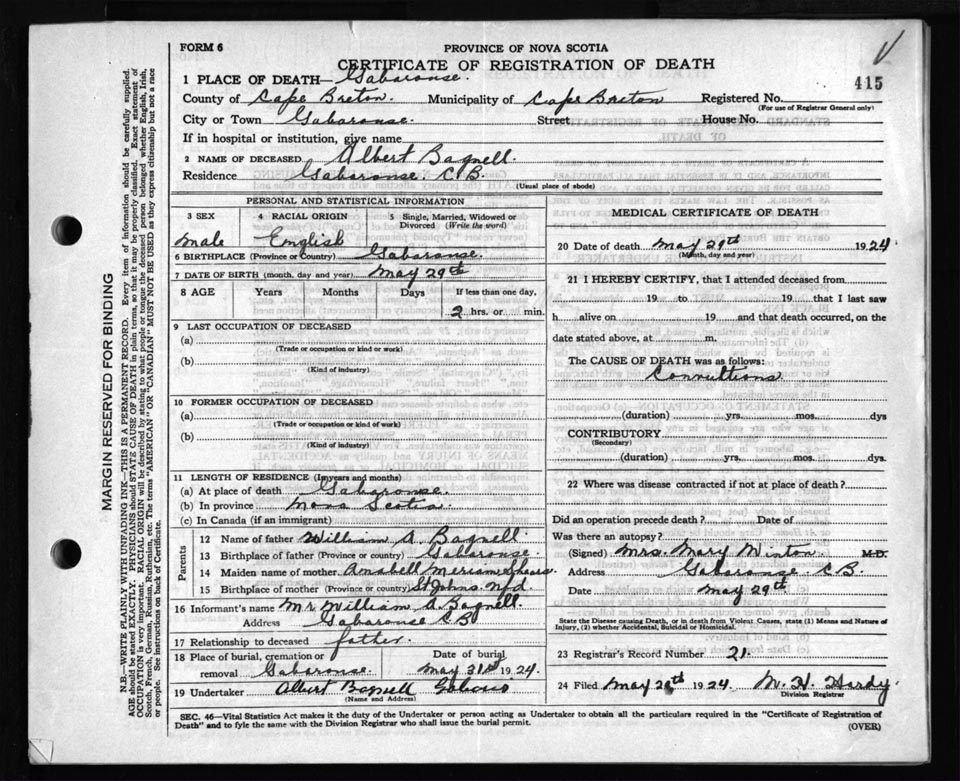 FORM 6
PROVINCE OF NOVA SCOTIA
CERTIFICATE OF REGISTRATION OF DEATH
415
1 PLACE OF DEATH— Gabarouse.
County of Cape Breton. Municipality of Cape Breton Registered No.
(For use of Registrar General only)
City or Town Gabarouse. Street House No.
If in hospital or institution, give name
2 NAME OF DECEASED Albert Bagnell.
Residence Gabarouse. C.B.
(Usual place of abode)
PERSONAL AND STATISTICAL INFORMATION
3 SEX 4 RACIAL ORIGIN 5 Single, Married, Widowed or Divorced (Write the word)
male English
6 BIRTHPLACE (Province or Country) Gabarouse.
7 DATE OF BIRTH (month, day and year) May 29th
8 AGE Years Months Days If less than one day,
2 hrs. or min.
9 LAST OCCUPATION OF DECEASED
(a)
(Trade or occupation or kind or work)
(b)
(Kind of industry)
10 FORMER OCCUPATION OF DECEASED
(a)
(Trade or occupation or kind of work)
(b)
(Kind of industry)
11 LENGTH OF RESIDENCE (In years and months)
(a) At place of death Gabarouse.
(b) In province Nova Scotia.
(c) In Canada (if an immigrant)
Parents
12 Name of father William A. Bagnell.
13 Birthplace of father (Province or country) Gabarouse.
14 Maiden name of mother Anabell Meriam
15 Birthplace of mother (Province or country) St Johns. Nfd.
16 Informant's name Mr William A. Bagnell.
Address Gabarouse C B.
17 Relationship to deceased father.
18 Place of burial, cremation or removal Gabarouse. Date of burial May 31st 1924.
19 Undertaker Albert Bagnell
(Name and Address)
MEDICAL CERTIFICATE OF DEATH
20 Date of death May 29th 1924.
(Month, day and year)
21 I HEREBY CERTIFY, that I attended deceased from
19 to 19 that I last saw
h alive on 19 and that death occurred, on the
date stated above, at m.
The CAUSE OF DEATH was as follows:
Convultions
(duration) yrs. mos. dys
CONTRIBUTORY
(Secondary)
(duration) yrs. mos. dys.
22 Where was disease contracted if not at place of death?
Did an operation precede death? Date of
Was there an autopsy?
(Signed) Mrs. Mary Minton M.D.
Address Gabarouse. C B.
Date May 29th
State the Disease causing Death, or in death from Violent Causes, state (1) Means and Nature of
Injury, (2) whether Accidental, Suicidal or Homicidal.
23 Registrar's Record Number 21.
24 Filed May 1924. M. H. Hardy.
Division Registrar
SEC. 46—Vital Statistics Act makes it the duty of the Undertaker or person acting as Undertaker to obtain all the particulars required in the "Certificate of Registration of
Death" and to fyle the same with the Division Registrar who shall issue the burial permit.
(OVER)
MARGIN RESERVED FOR BINDING
N.B.—WRITE PLAINLY WITH UNFADING INK—THIS IS A PERMANENT RECORD. Every item of information should be carefully supplied.
AGE should be stated EXACTLY. PHYSICIANS should STATE CAUSE OF DEATH in plain terms, so that it may be properly classified. Exact statement of
OCCUPATION is very important. RACIAL ORIGIN will be described by stating to what people or tongue the deceased person belonged whether English, Irish,
Scotch, French, German, Russian, Ruthenian, etc. The terms "AMERICAN" OR "CANADIAN" MUST NOT BE USED as they express citizenship but not a race
or people. See instructions on back of Certificate.